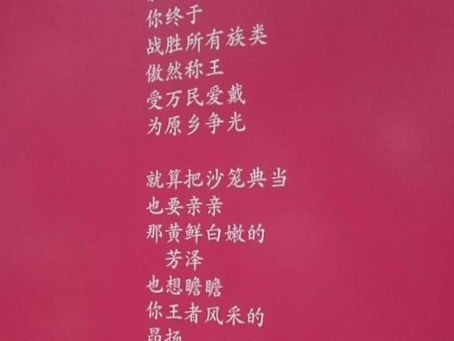 你终于
战胜所有族类
傲然称王
受万民爱戴
为原乡争光
就算把沙笼典当
也要亲亲
那黄鲜白嫩的
芳泽
也想瞻瞻
你王者风采的
昂扬